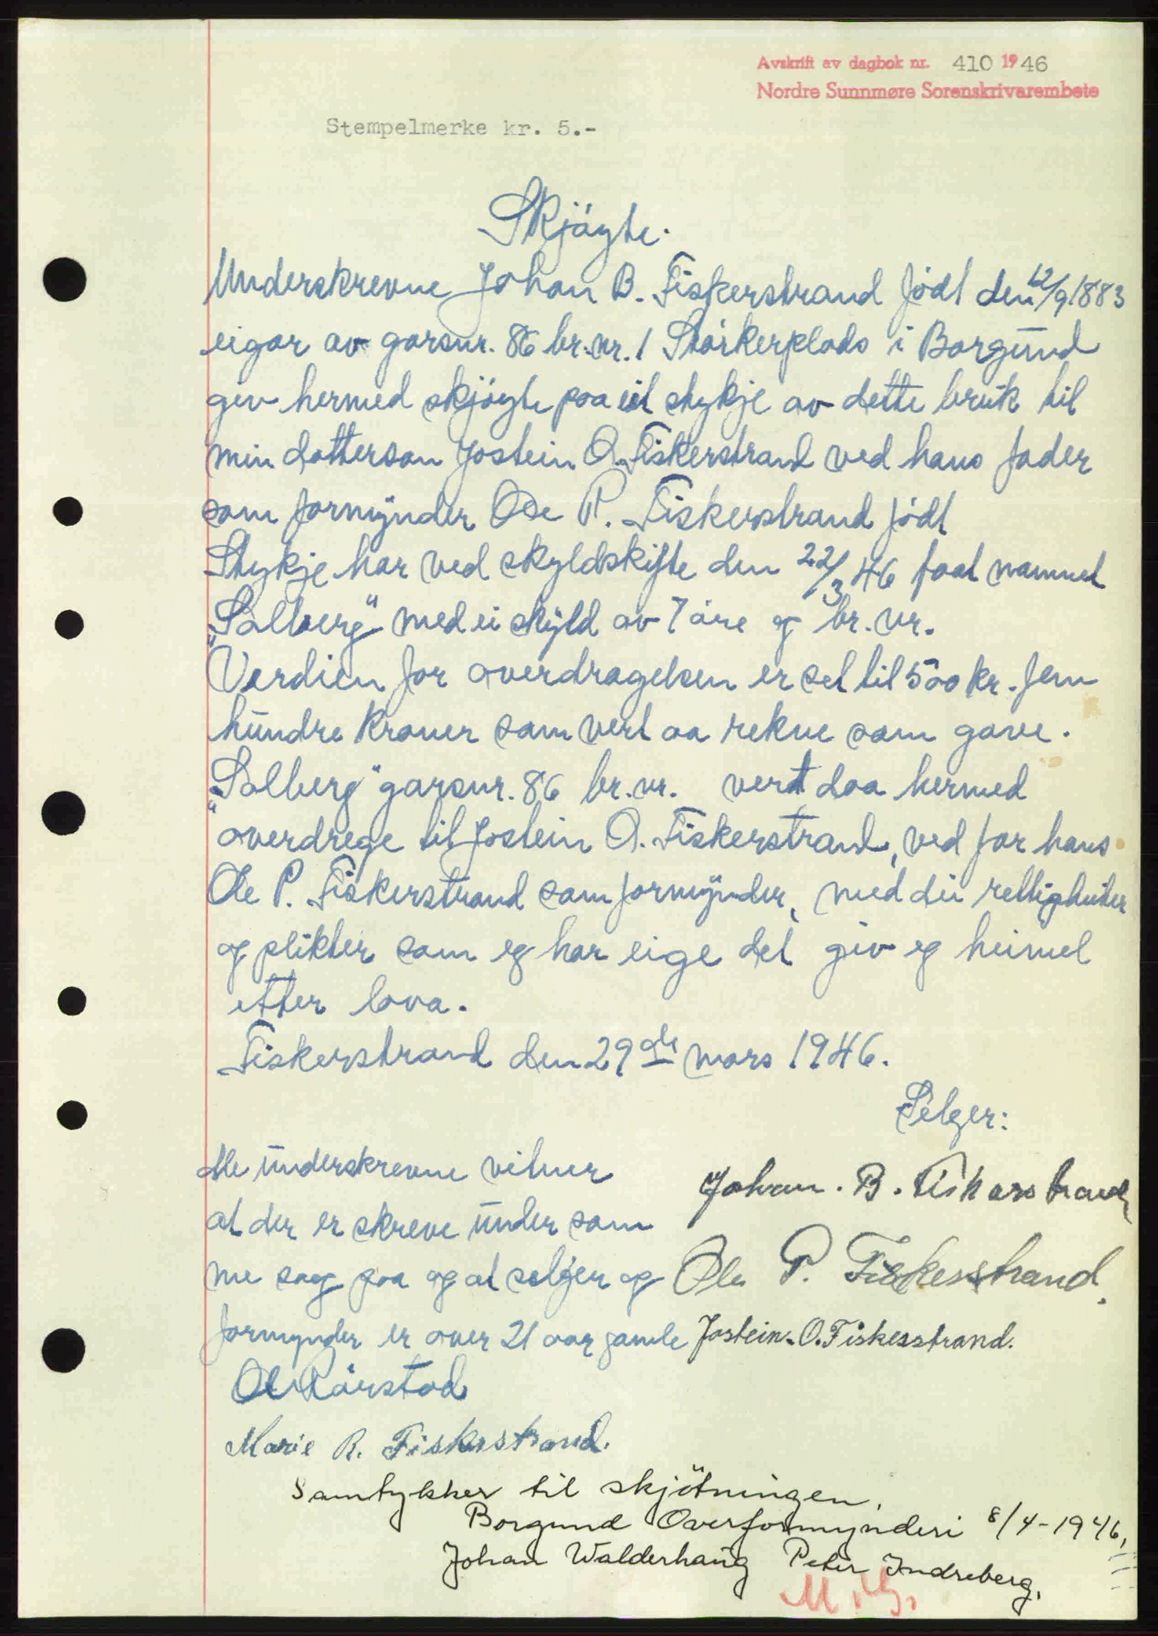 Avskrift av dagbok nr. 410 1946
Nordre Sunnmøre Sorenskrivarembete
Stempelmerke kr. 5.-
Skjøyte.
Underskrevne Johan B. Fiskerstrand født den 12/9 1883
eigar av garsnr. 86 br.nr. 1 i Borgund
giv hermed skjøyte paa eit stykje av dette bruk til
min datterson Jostein O. Fiskerstrand ved hans fader
som formynder Ole P. Fiskerstrand født
Stykje har ved skyldskifte den 22/3 46 faat namnet
"Solberg" med ei skyld av 7 øre og br. nr.
Verdien for overdragelsen er set til 500 kr. fem
hundre kroner som vert aa rekne som gave.
"Solberg" garsnr. 86 br. nr. vert daa hermed
overdrege til Jostein O. Fiskerstrand, ved far hans
Ole P. Fiskerstrand som formynder, med dei rettigheiter
og plikter som eg har eige det giv eg heimel
etter lova.
Fiskerstrand den 29de mars 1946.
Selger:
Me underskrevne vitner
at der er skreve under som
me sag paa og at selger og
formynder er over 21 aar gamle
Johan. B. Fiskerstrand
Ole P. Fiskerstrand.
Jostein. O. Fiskesstrand.
Marie R. Fiskerstrand.
Samtykker til skjötningen.
Borgund Overformynderi 8/4-1946.
Johan Walderhaug Peter Indreberg.